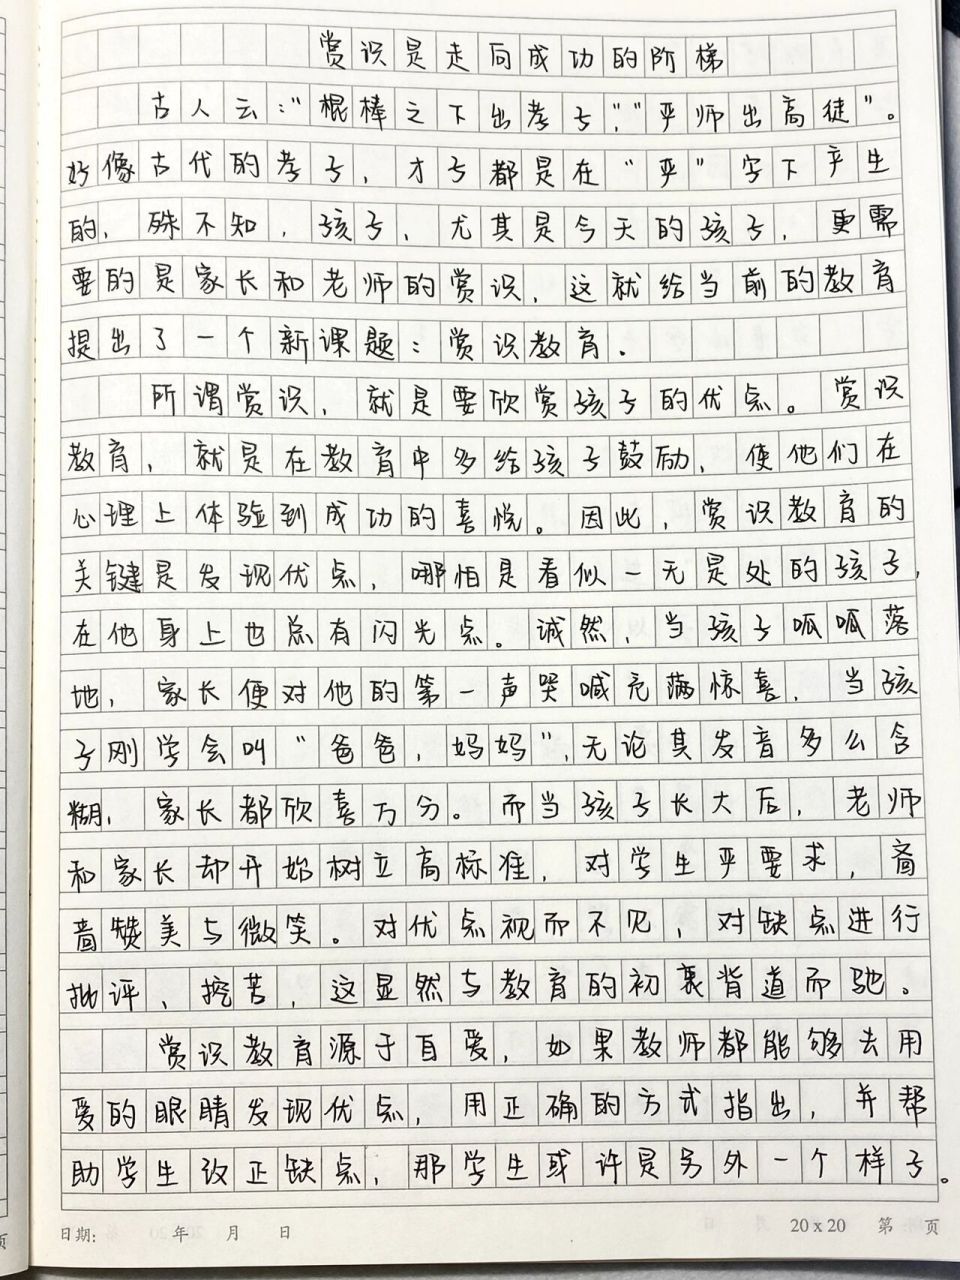 赏识是走向成功的阶梯
古人云:“棍棒之下出孝子”,“严师出高徒”。
好像古代的孝子,才子都是在“严”字下产生
的,殊不知,孩子,尤其是今天的孩子,更需
要的是家长和老师的赏识,这就给当前的教育
提出了一个新课题:赏识教育.
所谓赏识,就是要欣赏孩子的优点。赏识
教育,就是在教育中多给孩子鼓励,使他们在
心理上体验到成功的喜悦。因此,赏识教育的
关键是发现优点,哪怕是看似一无是处的孩子,
在他身上也总有闪光点。诚然,当孩子呱呱落
地,家长便对他的第一声哭喊充满惊喜,当孩
子刚学会叫“爸爸,妈妈”,无论其发音多么含
糊,家长都欣喜万分。而当孩子长大后,老师
和家长却开始树立高标准,对学生严要求,吝
啬赞美与微笑。对优点视而不见,对缺点进行
批评、挖苦,这显然与教育的初衷背道而驰。
赏识教育源于自爱,如果教师都能够去用
爱的眼睛发现优点,用正确的方式指出,并帮
助学生改正缺点,那学生或许是另外一个样子。
日期: 年 月 日 20 x 20 第 页
页